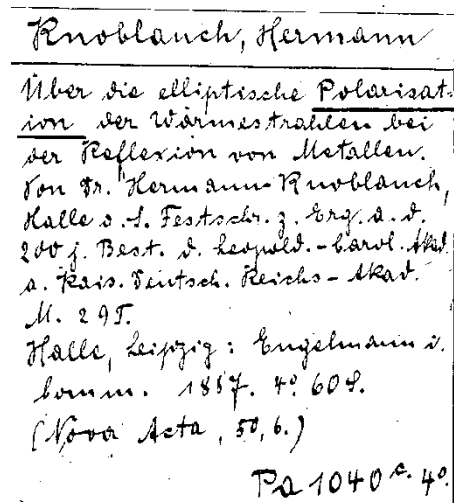 Knoblauch, Hermann
Über die elliptische Polarisat-
ion der Wärmestrahlen bei
der Reflexion von Metallen.
Von Dr. Hermann Knoblauch,
Halle a. S. Festschr. z. Erg. a. d.
200 j. Best. d. Leopold.-Carol. Akad.
a. Kais. Deutsch. Reichs-Akad.
M. 29 T.
Halle, Leipzig: Engelmann i.
Comm. 1887. 4° 60 S.
(Nova Acta, 50, 6.)
Pa 1040 c. 4°.